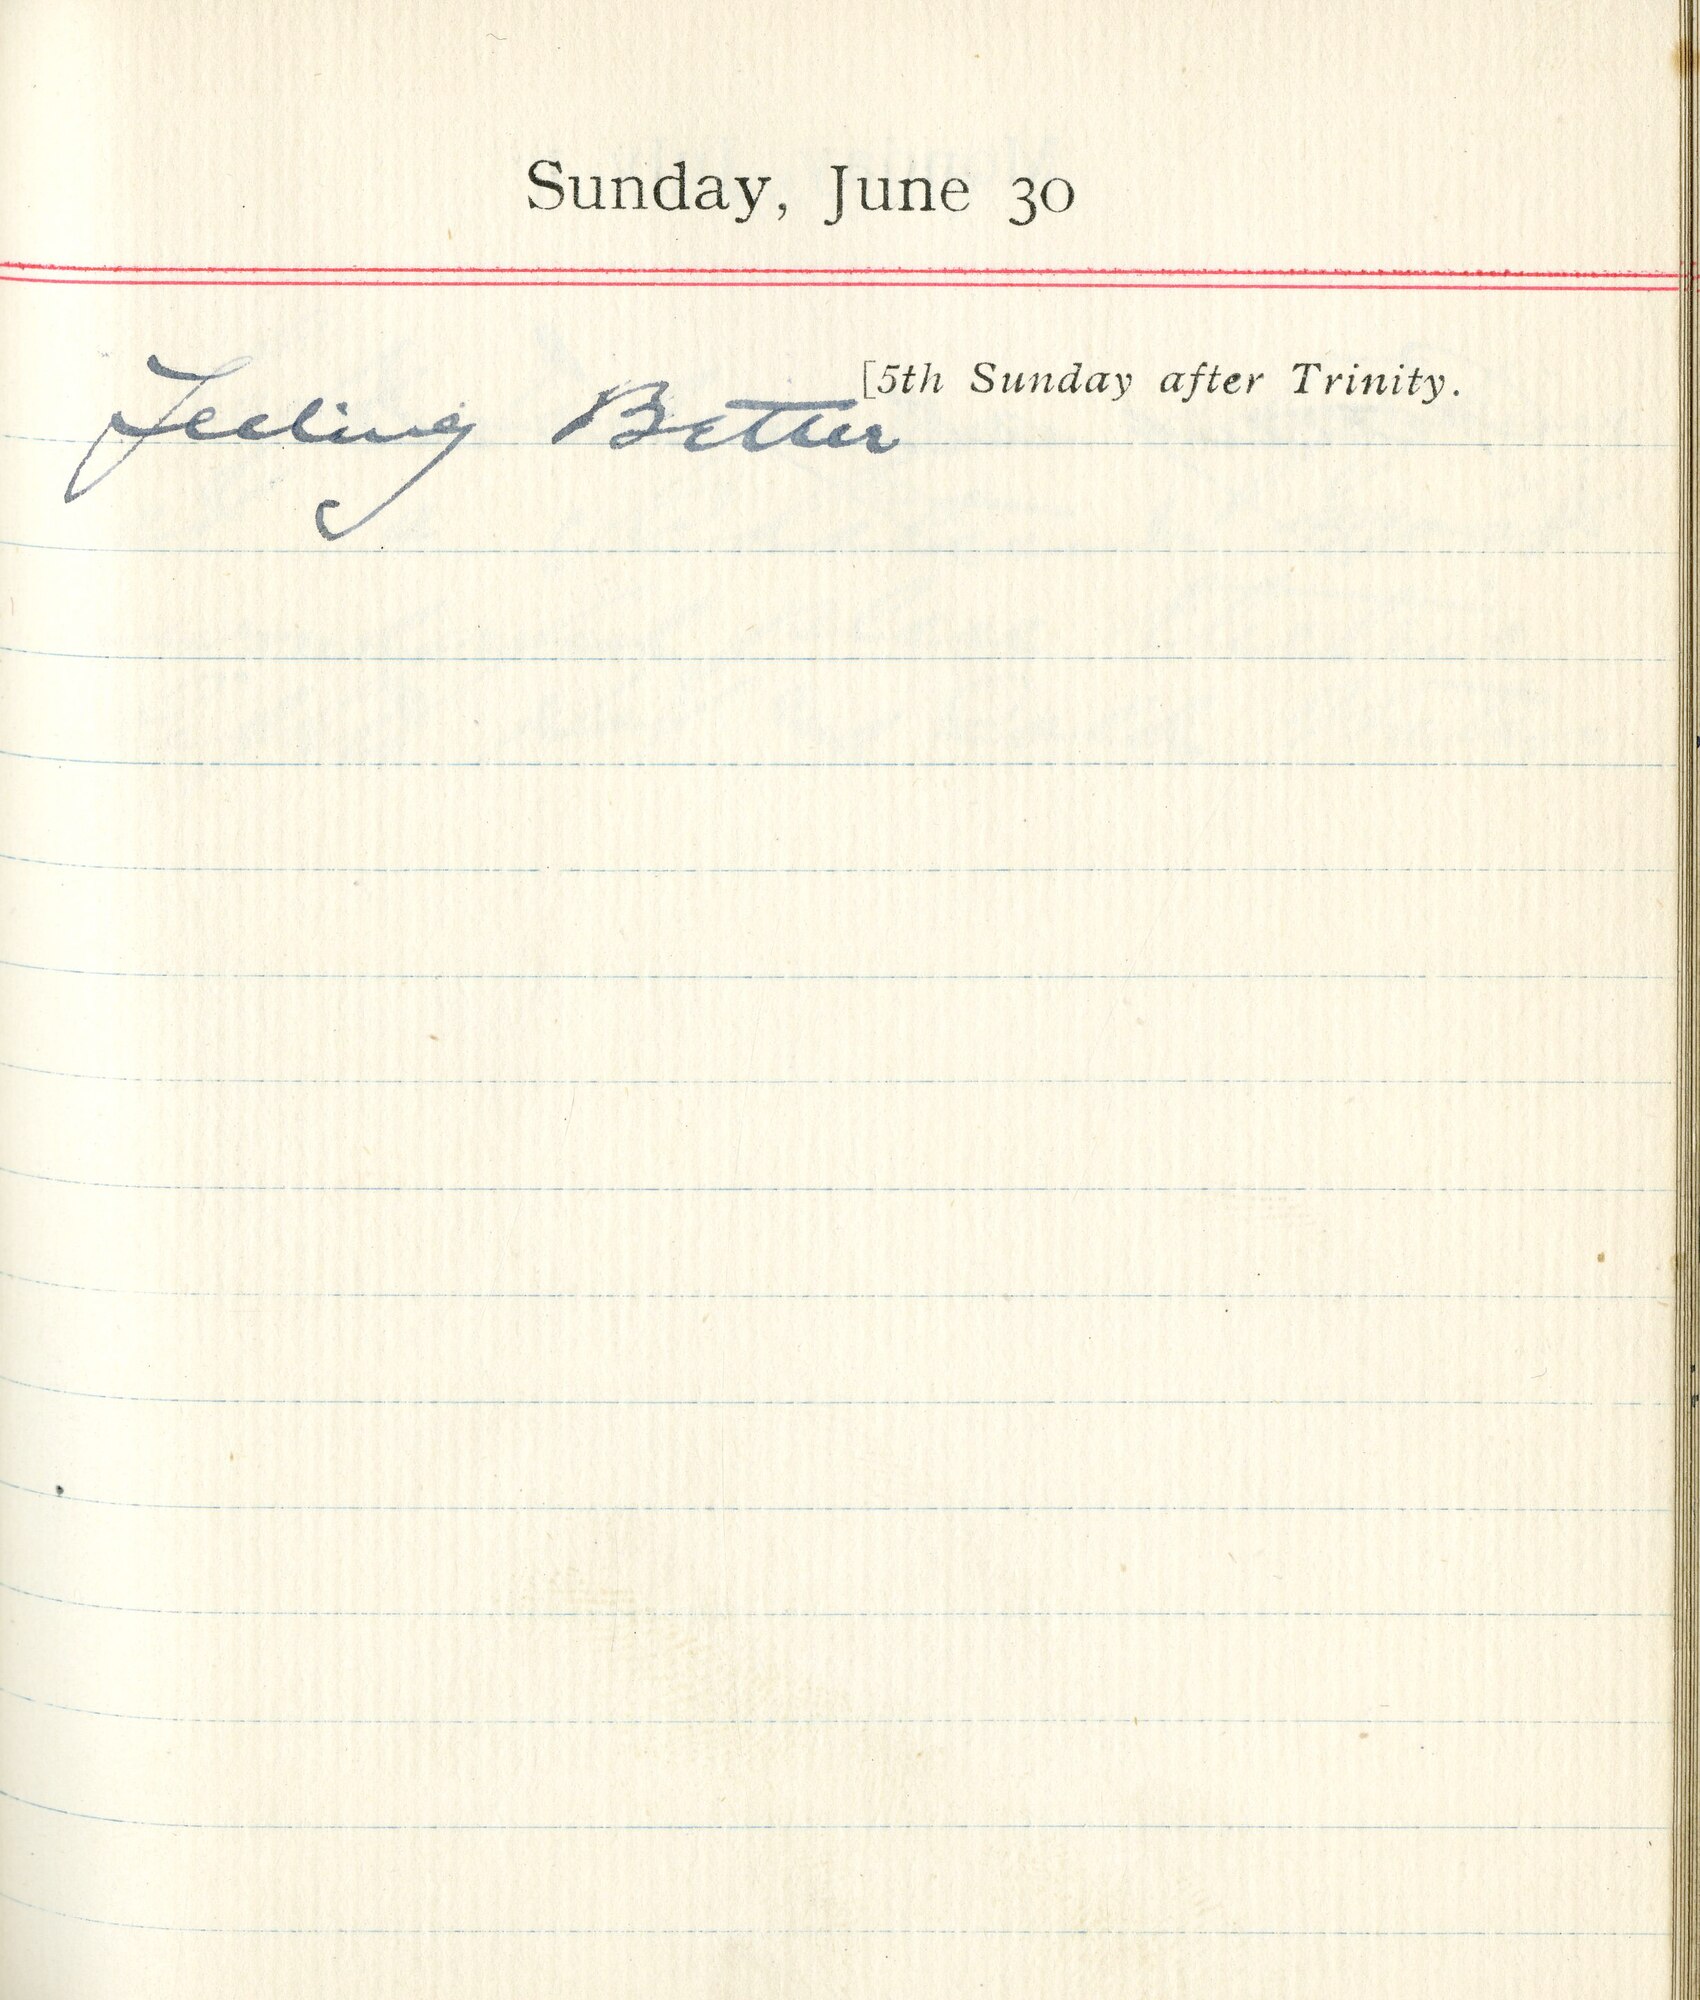 Sunday, June 30
[5th Sunday after Trinity.
Feeling Better